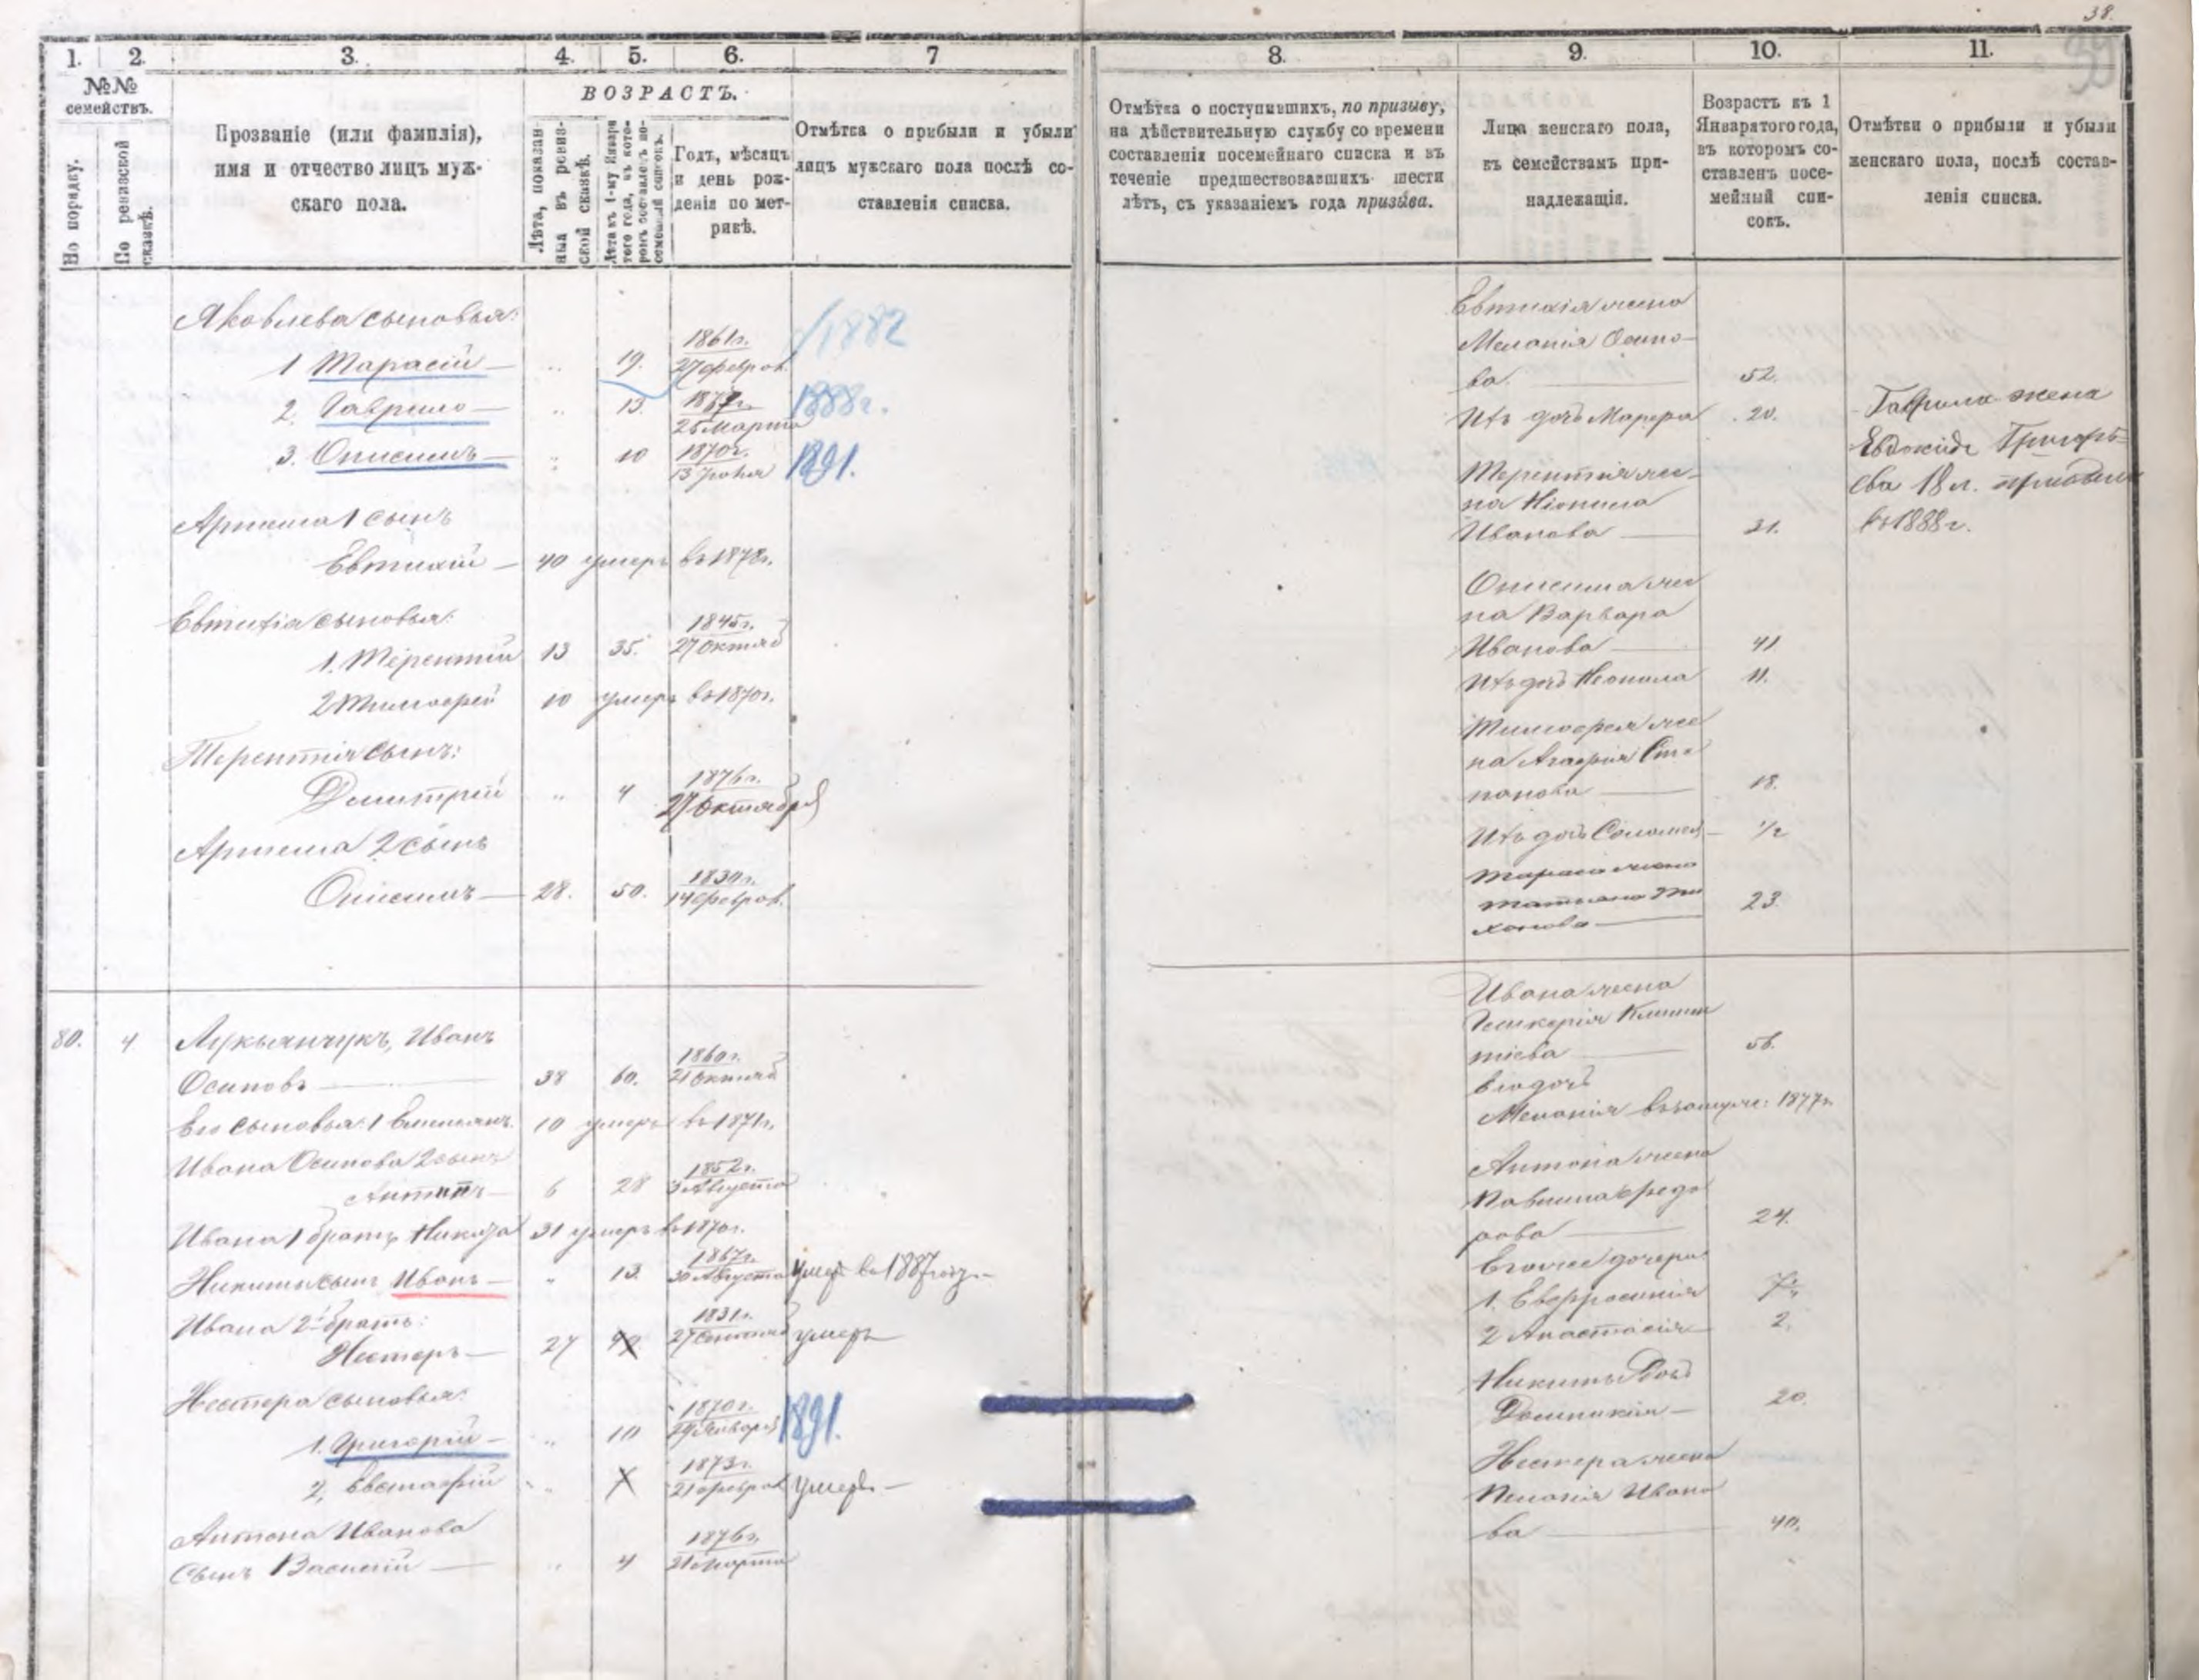 38.
39
1.
2.
3.
4.
5.
6.
7
8.
9.
10.
11.
№№
семействъ.
По порядку.
По ревизской
сказкѣ.
Прозваніе (или фамилія),
имя и отчество лицъ муж-
скаго пола.
ВОЗРАСТЪ.
Лѣта, показан-
ныя въ ревиз-
ской сказкѣ.
Лѣта къ 1-му Января
того года, въ кото-
ромъ составленъ по-
семейный списокъ.
Годъ, мѣсяцъ
и день рож-
денія по мет-
рикѣ.
Отмѣтка о прибыли и убыли
лицъ мужскаго пола послѣ со-
ставленія списка.
Отмѣтка о поступившихъ, по призыву,
на дѣйствительную службу со времени
составленія посемейнаго списка и въ
теченіе предшествовавшихъ шести
лѣтъ, съ указаніемъ года призыва.
Лица женскаго пола,
къ семействамъ при-
надлежащія.
Возрастъ къ 1
Января того года,
въ которомъ со-
ставленъ посе-
мейный спи-
сокъ.
Отмѣтки о прибыли и убыли
женскаго пола, послѣ состав-
ленія списка.
Яковлева сыновья:
1 Тарасій — „ 19. 1861г. 27 феврал. 1882
2. Гаврило — „ 13. 25 Марта 1888г.
3. Онисимъ — „ 10 1870г. 13 1891.
Артема 1 сынъ
Евтихій — 40 умеръ въ 1878г.
Евтихія сыновья:
1. Терентій 13 35. 1845г. 27 Октяб
2 Тимофей 10 умеръ въ 1870г.
Терентія сынъ:
Дмитрій „ 4 1876г. 27 Октября
Артема 2 сынъ
Онисимъ — 28. 50. 1830г. 14 феврал.
80. 4 Лукьянчукъ, Иванъ
Осиповъ — 38 60. 21 Октяб
Его сыновья: 1 Емельянъ. 10 умеръ въ 1871г.
Ивана Осипова 2 сынъ
Антонъ — 6 28 1852г. 3 Августа
Ивана 1 братъ Никита 31 умеръ въ 1870г.
Никиты сынъ Иванъ — „ 13. 1867г. 30 Августа умеръ въ 1887 году
Ивана 2й братъ:
Нестеръ — 27 1831г. 27 умеръ
Нестера сыновья:
1. Григорій — „ 10 1870г. 29 Января 1891.
2, Евстафій „ 1873г. 21 феврал умеръ —
Антона Иванова
сынъ Василій — „ 4 1876г. 21 Марта
Евтихія жена
Меланія Осипо-
ва. — 52.
Ихъ дочь Марфа 20.
Терентія же-
на Неонила
Иванова — 31.
Онисима же
на Варвара
Иванова — 41
Ихъ дочь Неонила 11.
Тимофея же
на Агафія Сте
панова — 18.
Ихъ дочь Соломея — 1/2
Тарасія жена
Татьяна Ти
хонова — 23.
Гаврила жена
Евдокія Григорь=
ева 18 л.
въ 1888 г.
Ивана жена
Гликерія Климен
тіева — 56.
Его дочь
Меланія въ замуж: 1877г.
Антона жена
Павлина Федо
рова — 24.
Его же дочери
1. Евфросинія
2 Анастасія — 2.
Никиты дочь
Домникія — 20.
Нестера жена
Пелагія Ивано
ва — 40.